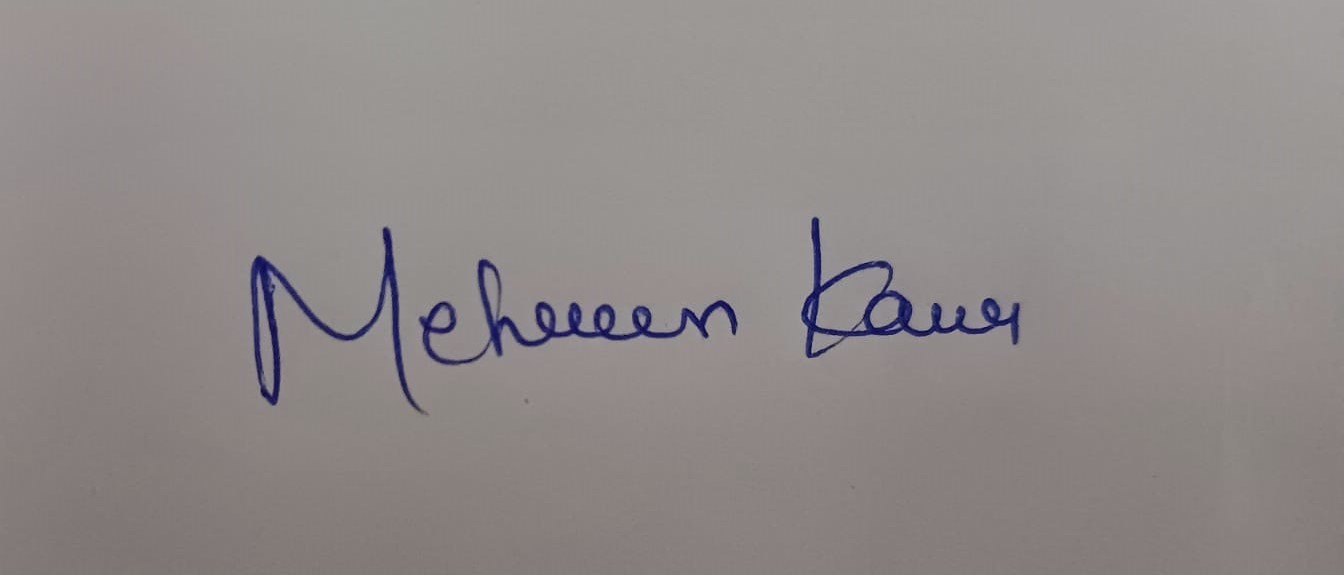 Mehreen Kaur